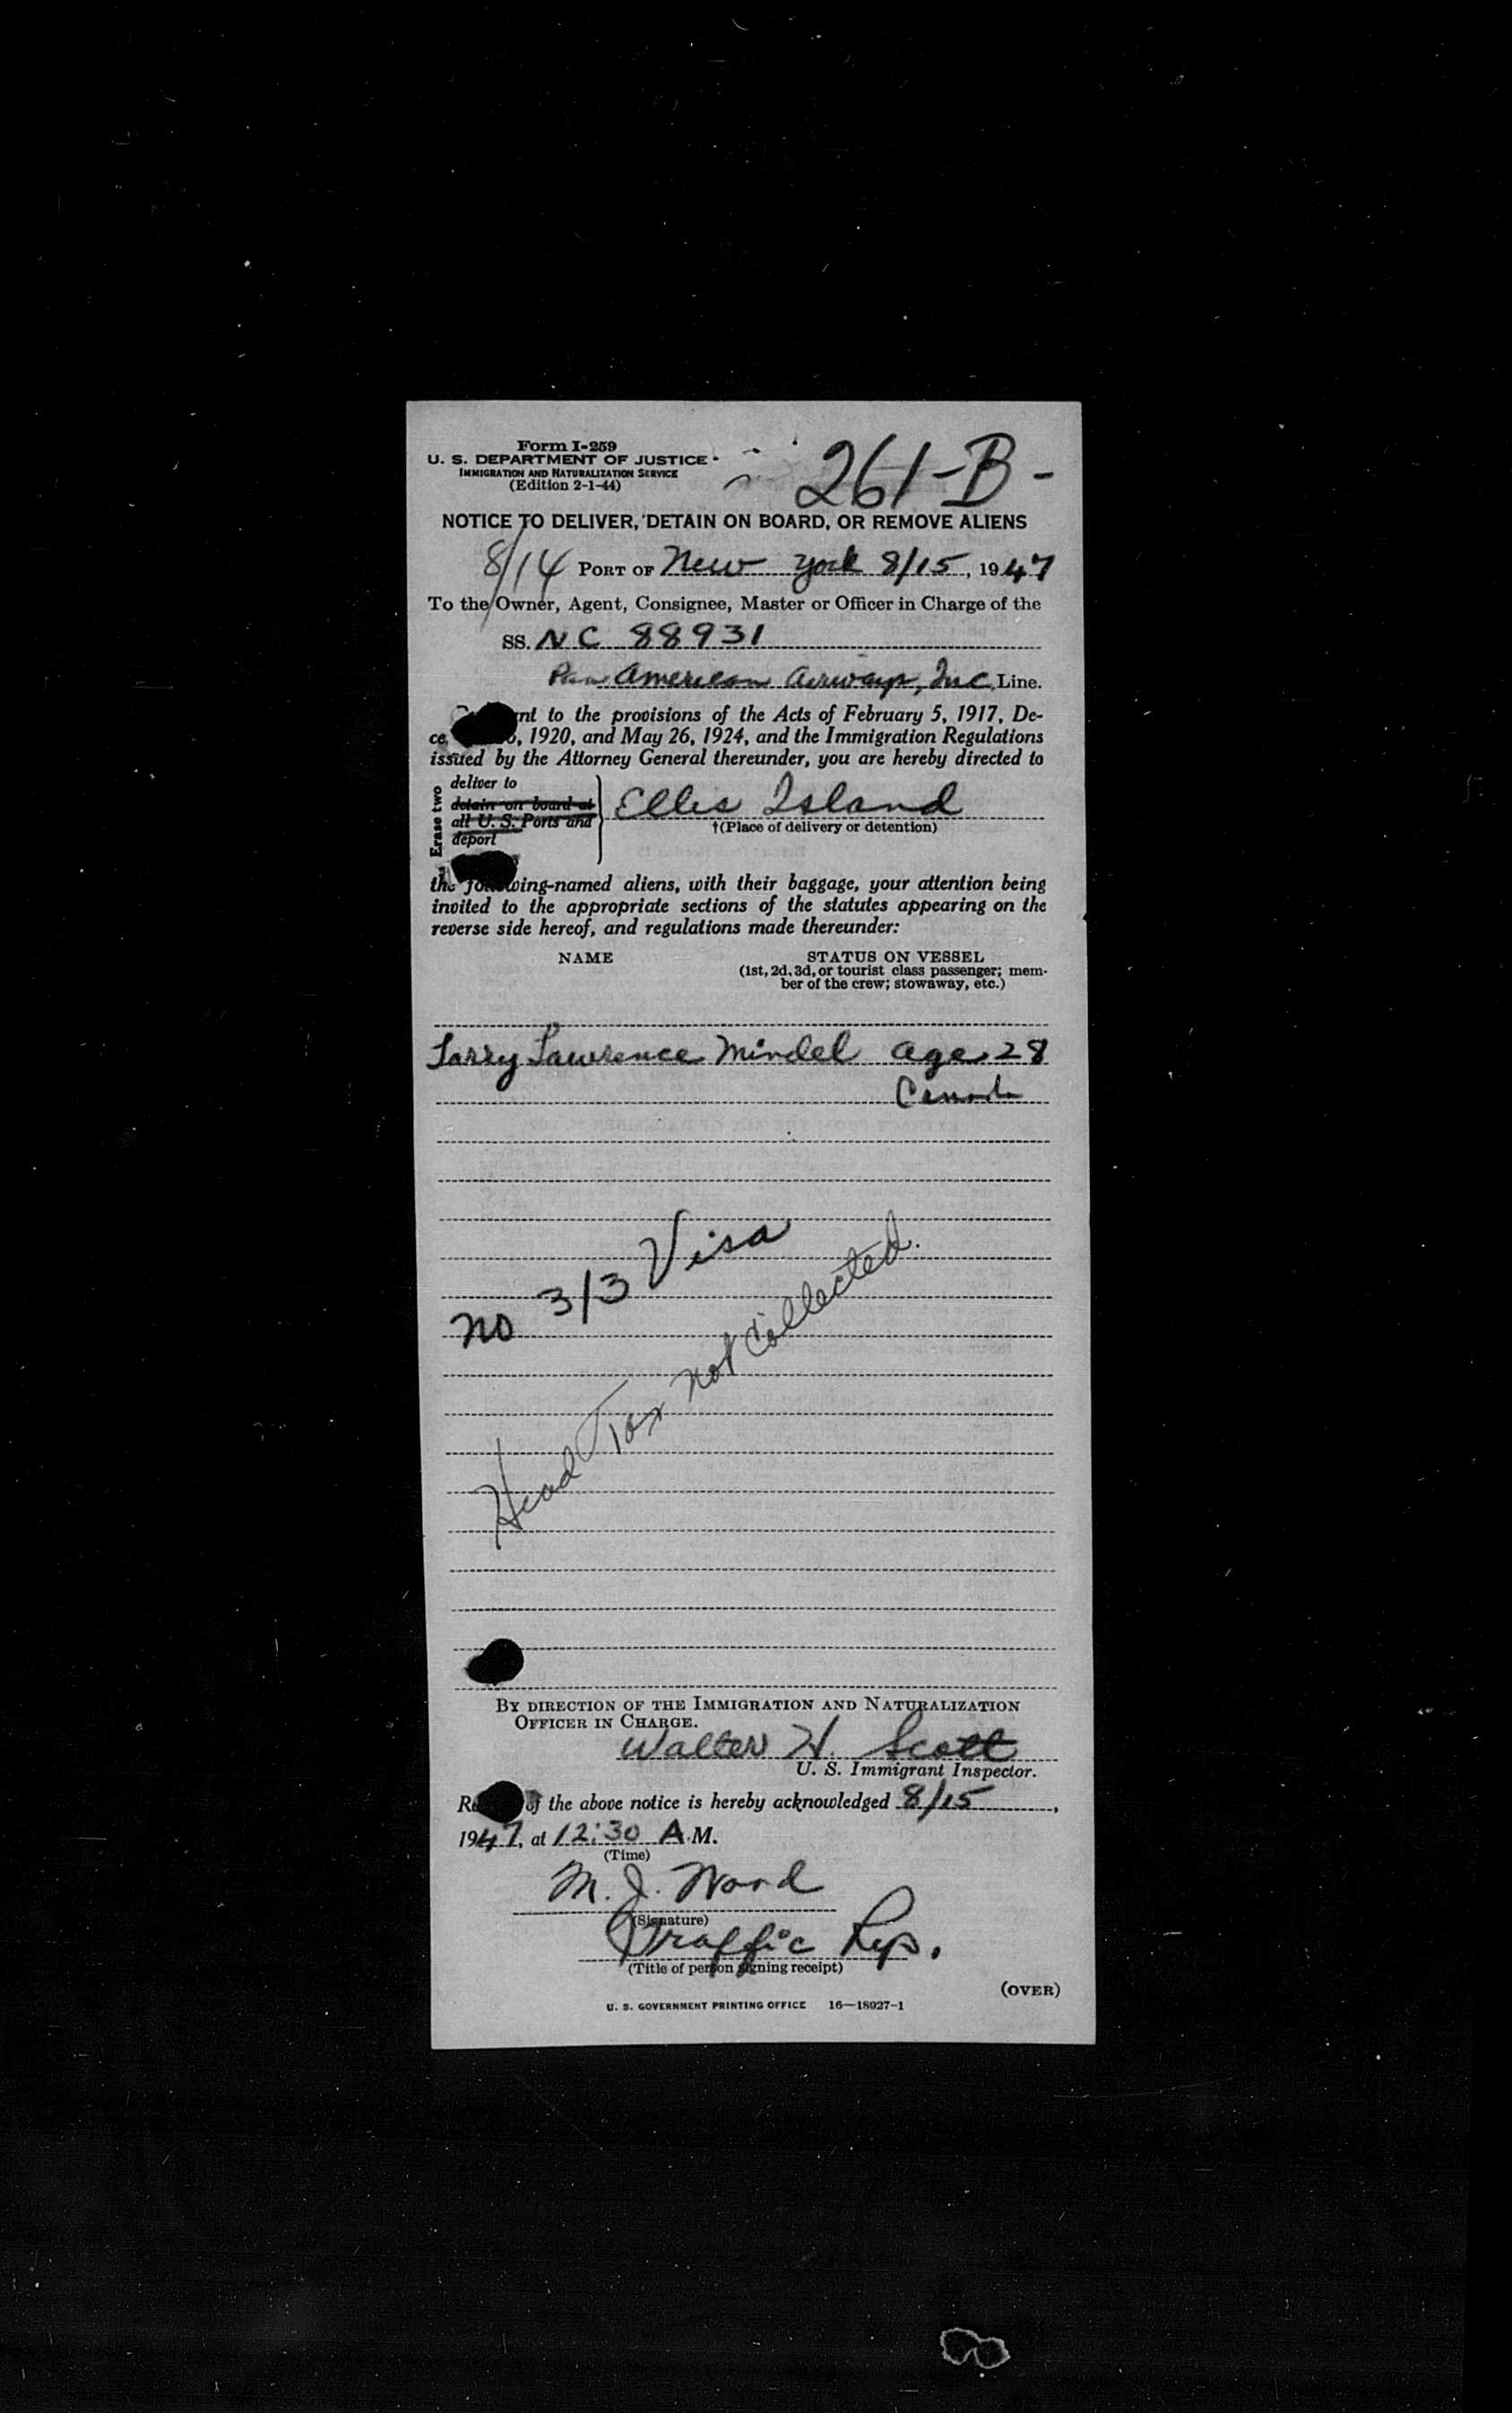 Form I-259
U. S. DEPARTMENT OF JUSTICE
IMMIGRATION AND NATURALIZATION SERVICE
(Edition 2-1-44)
261-B-
NOTICE TO DELIVER, DETAIN ON BOARD, OR REMOVE ALIENS
8/14 PORT OF New York 8/15, 1947
To the Owner, Agent, Consignee, Master or Officer in Charge of the
SS. NC 88931
Pan American Airways, Inc. Line.
nt to the provisions of the Acts of February 5, 1917, De-
ce 6, 1920, and May 26, 1924, and the Immigration Regulations
issued by the Attorney General thereunder, you are hereby directed to
Erase two
deliver to
detain on board at
all U. S. Ports and
deport
Ellis Island
†(Place of delivery or detention)
the following-named aliens, with their baggage, your attention being
invited to the appropriate sections of the statutes appearing on the
reverse side hereof, and regulations made thereunder:
NAME STATUS ON VESSEL
(1st, 2d, 3d, or tourist class passenger; mem-
ber of the crew; stowaway, etc.)
Larry Lawrence Mindel age 28
Canada
no 3/3 Visa
Head Tax not Collected.
BY DIRECTION OF THE IMMIGRATION AND NATURALIZATION
OFFICER IN CHARGE.
Walter H. Scott
U. S. Immigrant Inspector.
Re of the above notice is hereby acknowledged 8/15,
1947, at 12:30 A.M.
(Time)
M. J. Ward
(Signature)
Traffic Rep.
(Title of person signing receipt)
(OVER)
U. S. GOVERNMENT PRINTING OFFICE 16—18927-1